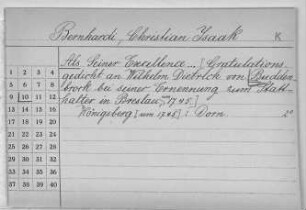 Bernhardi, Christian Isaak K
Als Seiner Excellence... [Gratulations
gedicht an Wilhelm Dietrich von Budden
brock bei seiner Ernennung zum Statt
halter in Breslau, 1745.]
Königsberg [um 1745]: Dorn. 2°
1 2 3 4
5 6 7 8
9 10 11 12
13 14 15 16
17 18 19 20
21 22 23 24
25 26 27 28
29 30 31 32
33 34 35 36
37 38 39 40